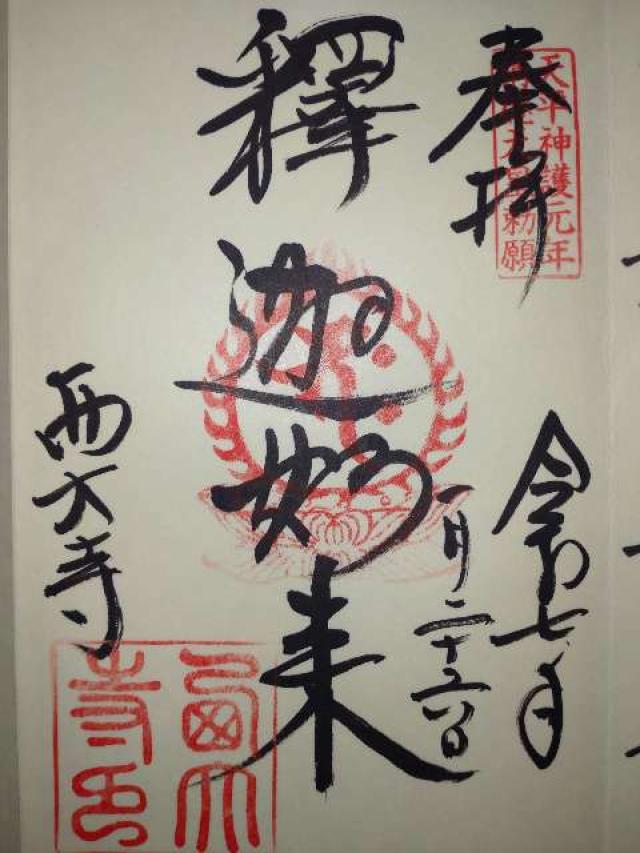 奉拝
天平神護元年
天皇勅願
令和七年
一月二十六日
釋迦如来
西大寺
西大寺印